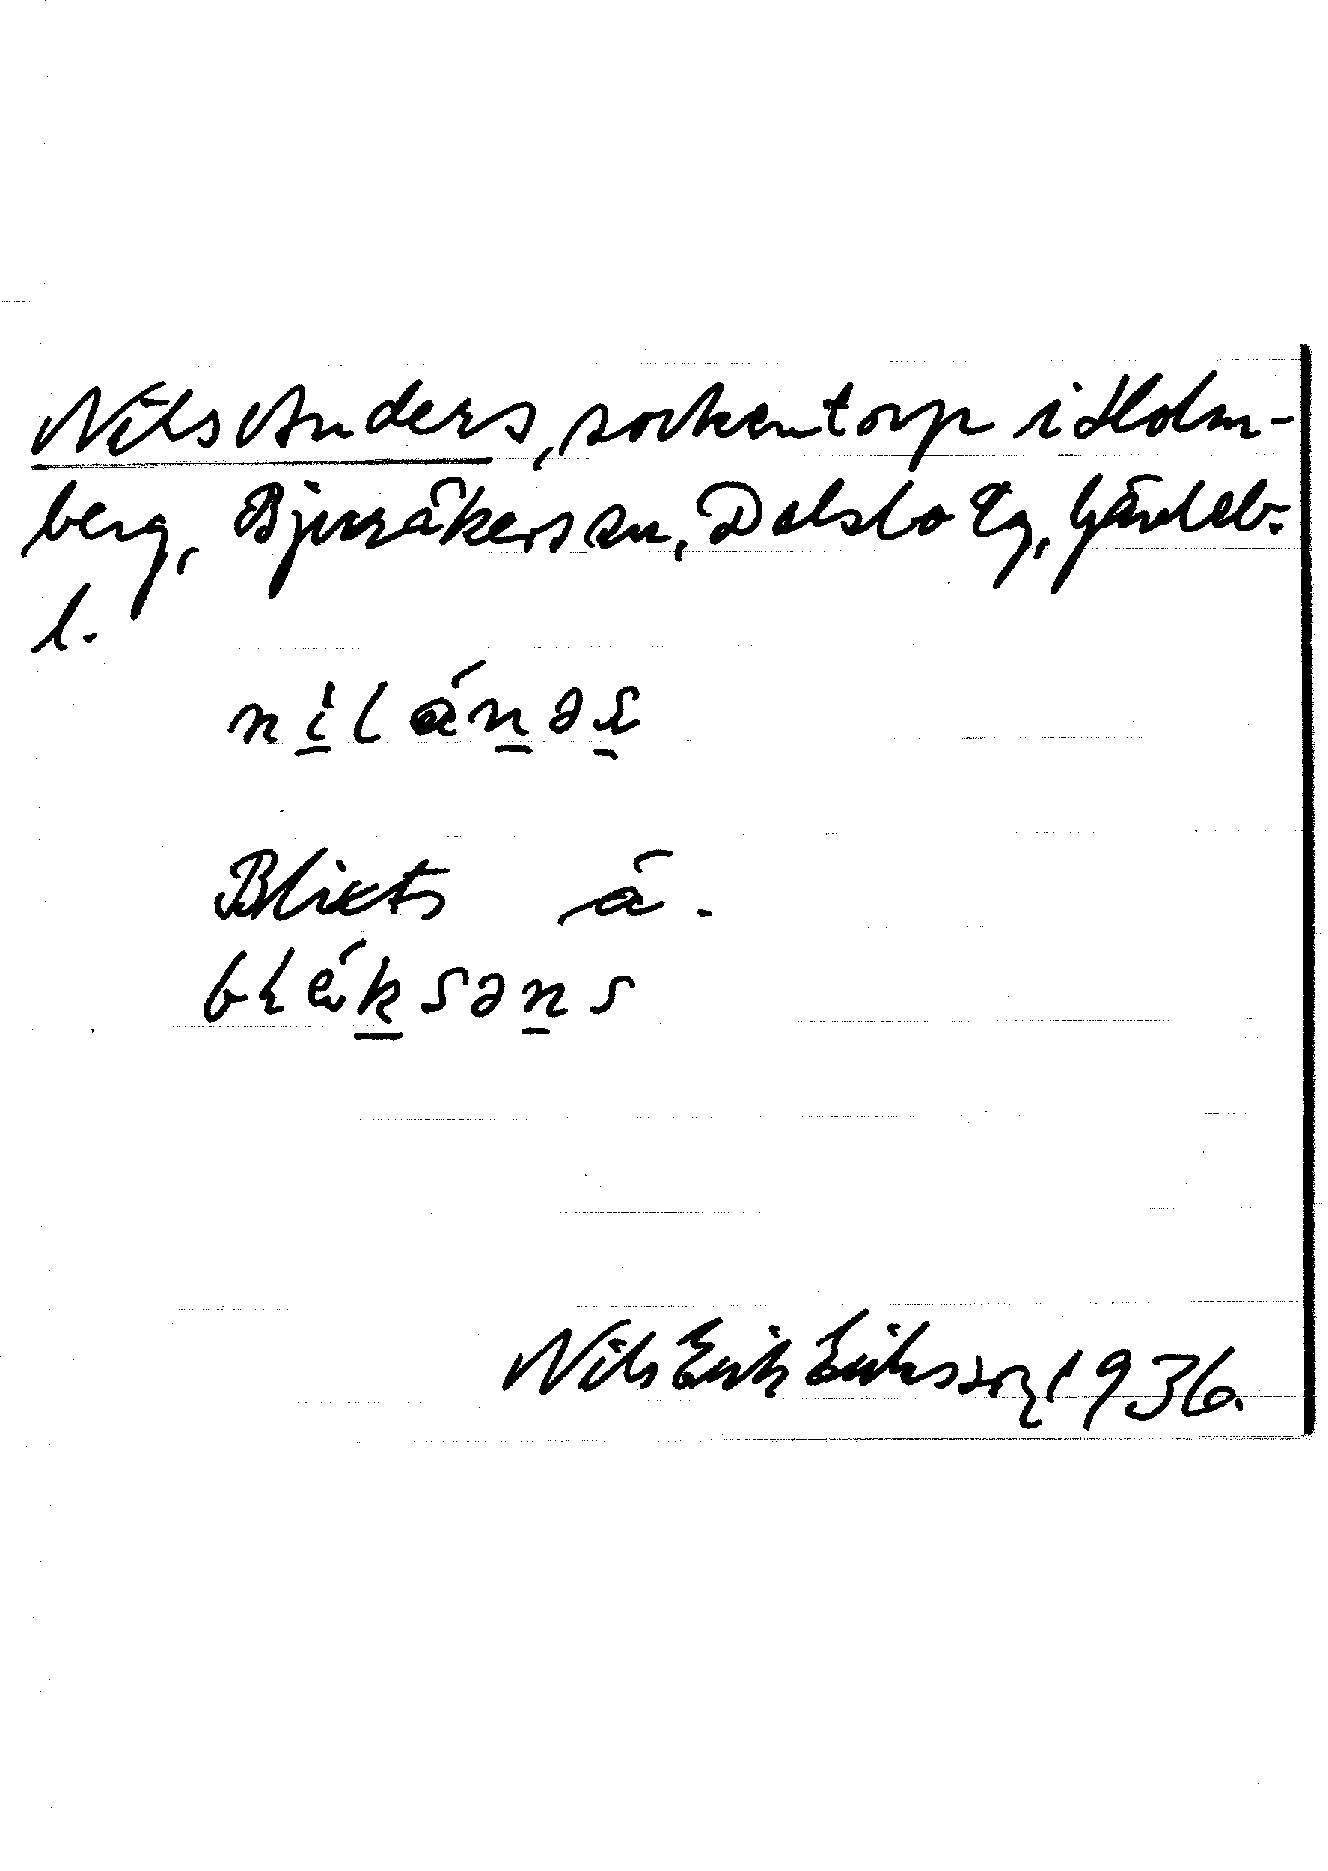 Nils Anders, sockentorp i Holm-
berg, Bjuråkers sn, Delsbo tg, Gävleb:s
l.
nilánəs
Blixts å.
bléksəns
Nils Erik Eriksson, 1936.